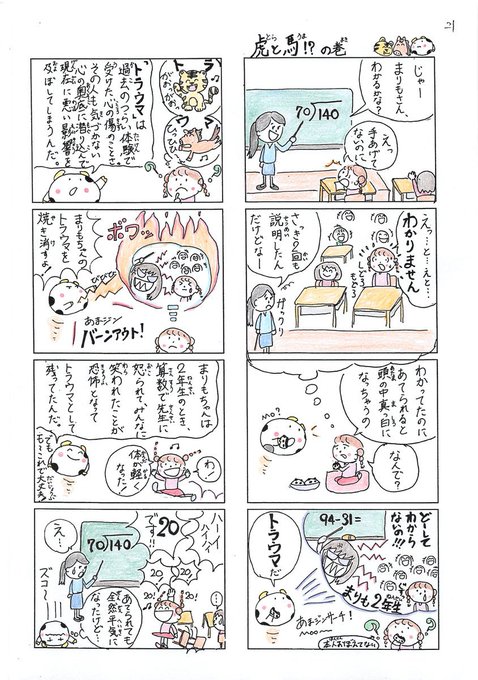 21
虎と馬!?の巻
じゃー
まりもさん、
わかるかな?
えっ
手あげて
ないのに
70)140
えっ…と…えと…
わかりません
もどろ
もどろ
さっき2回も
説明したん
だけどなー
がっくり
わかってたのに
あてられると
頭の中真っ白に
なっちゃうの
なんで?
MO?
どーして
わから
ないの!!!
94-31=
トラウマだ
まりも2年生
あまジンサーチ!
本人おぼえてない
トラ
ウマ
がおーっ
ひひーん
「トラウマ」は
過去のつらい体験で
受けた心の傷のことで
その人も気づかない
心の奥底に潜り込んで
現在に悪い影響を
及ぼしてしまうんだ。
まりもちゃんの
トラウマを
焼き消すよ!
ボワッ
あまジン
バーンアウト!
まりもちゃんは
2年生のとき、
算数で先生に
怒られてみんなに
笑われたことが
恐怖となって
トラウマとして
残ってたんだ。
わ
体が軽く
なった!
でも
もうこれで大丈夫!
ハーイ
ハイハイ
20
です!!
70)140
え…
20!
20!
20!
ズコー
あてられても
全然平気に
なったけど…